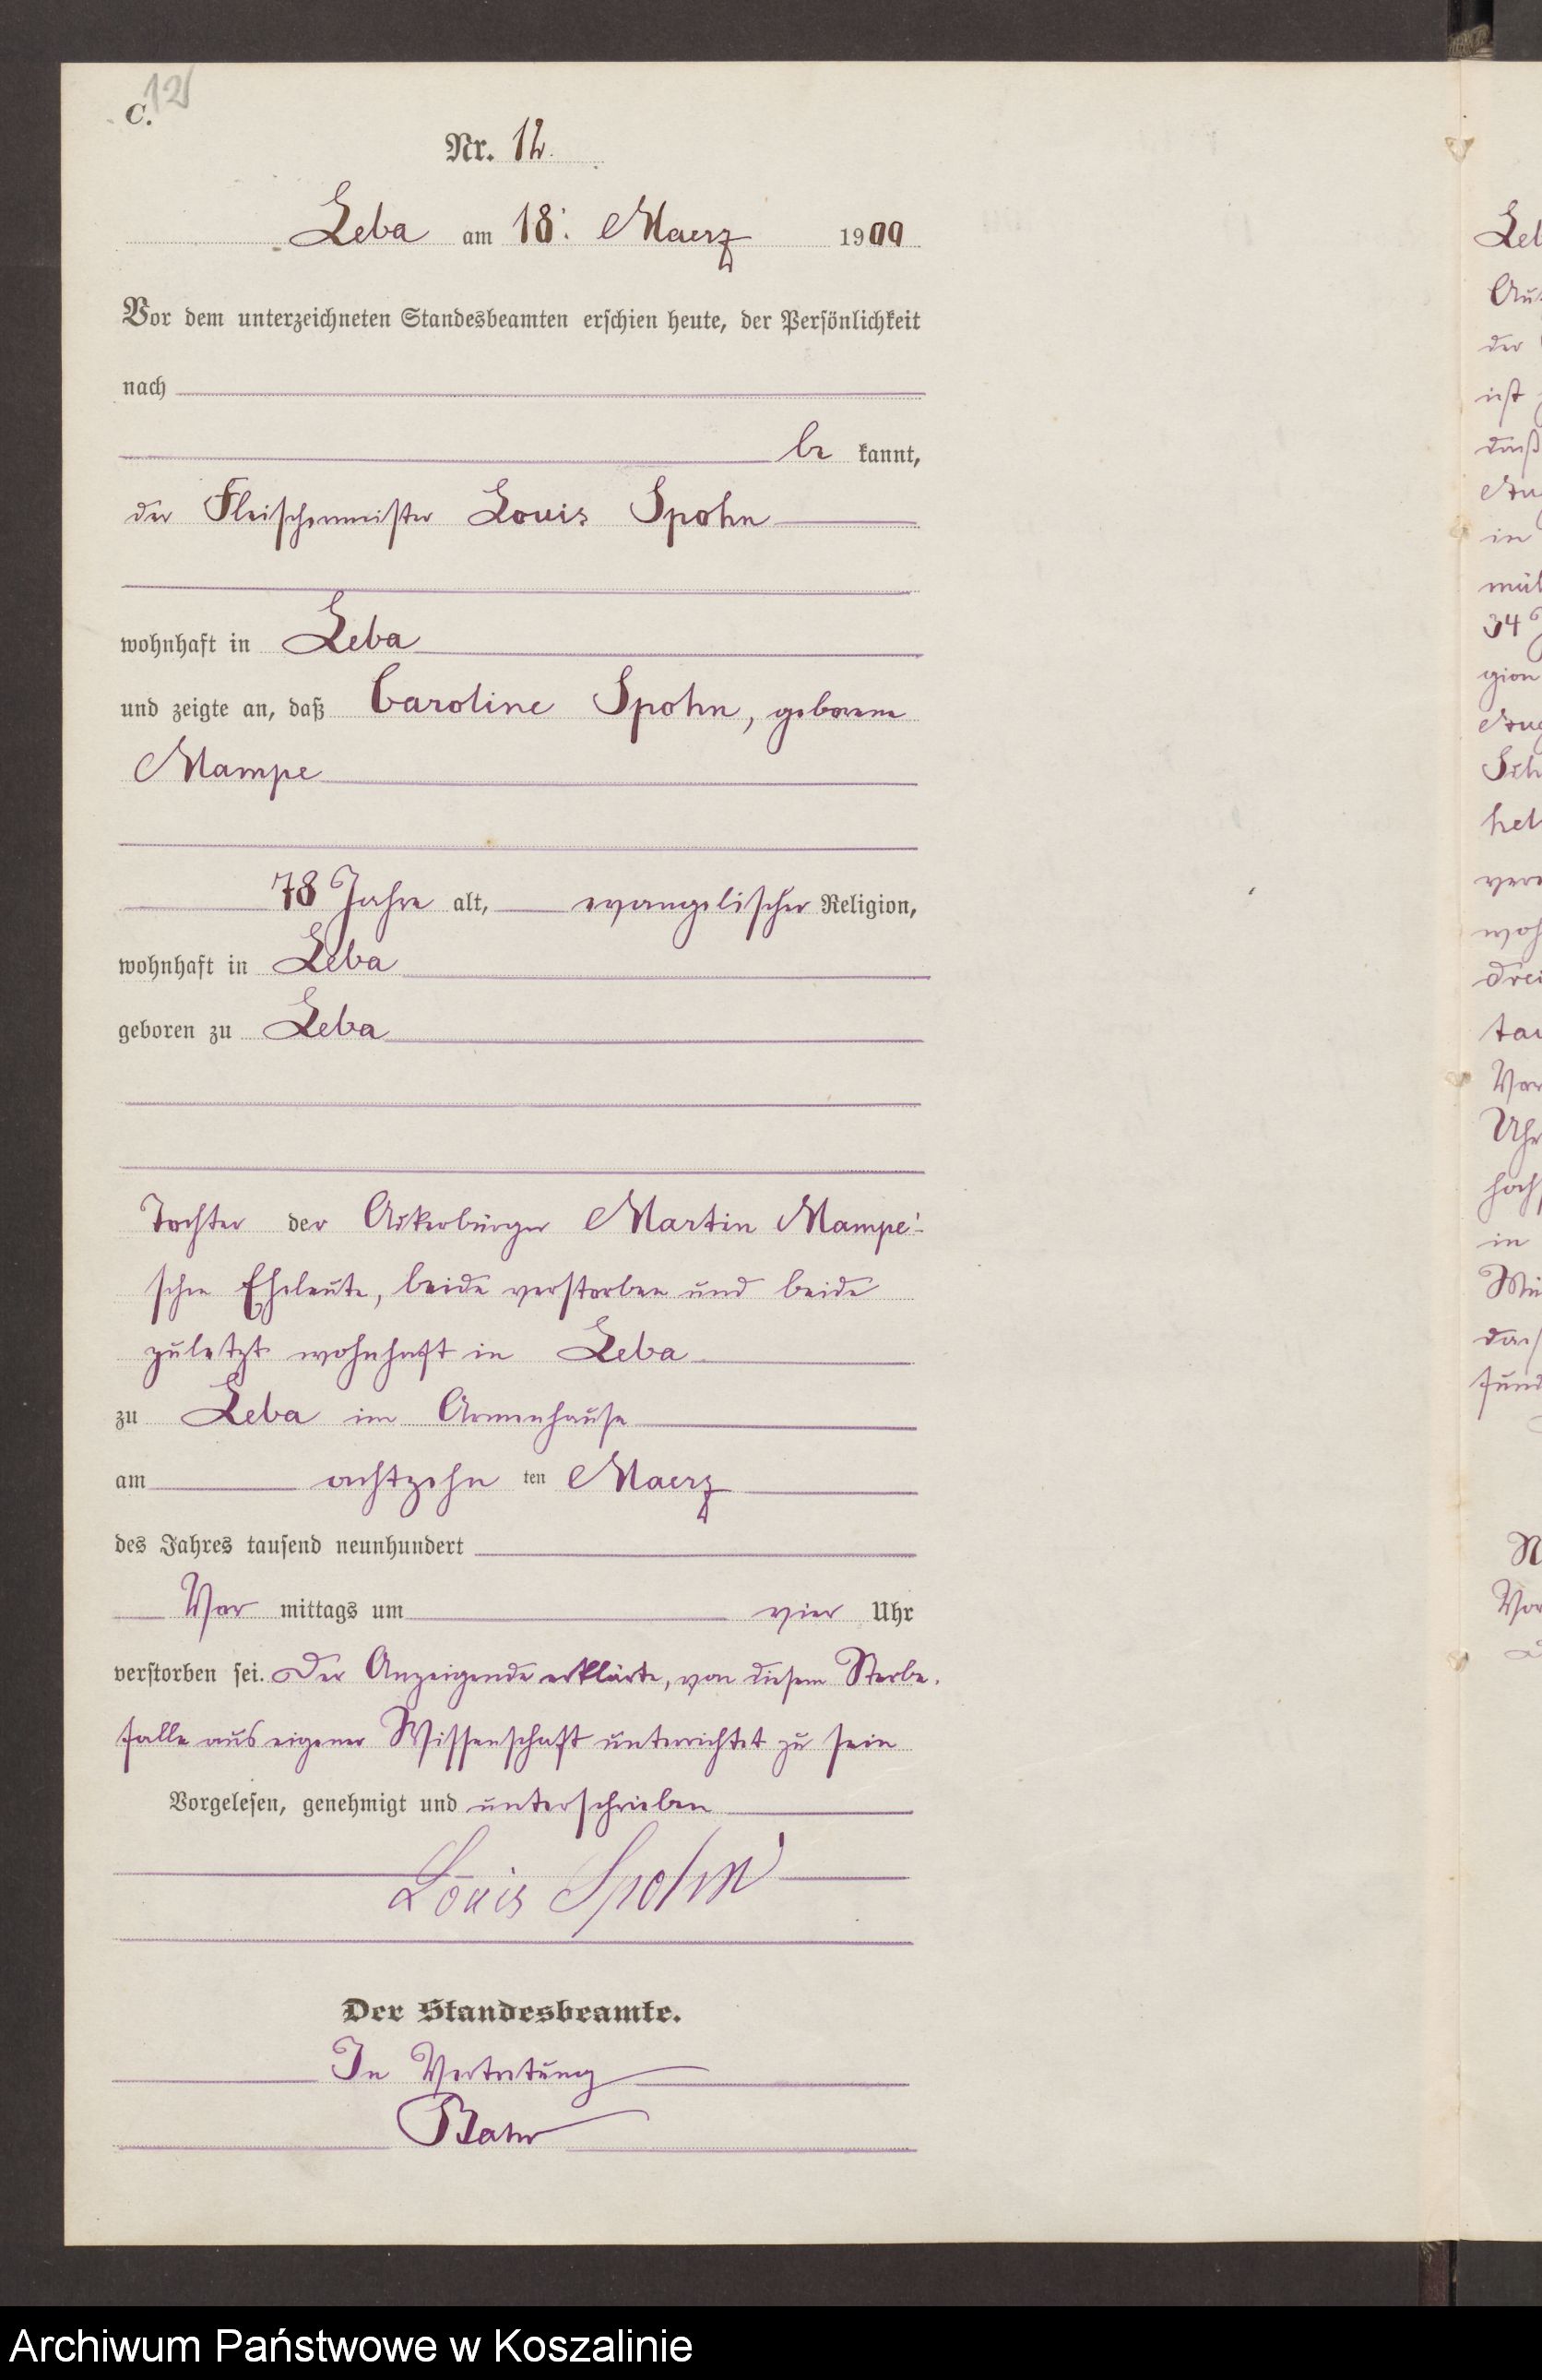 12
C.
Nr. 12.
Leba am 18. Maerz 1900
Vor dem unterzeichneten Standesbeamten erschien heute, der Persönlichkeit
nach
be kannt,
der Fleischermeister Louis Spohn
wohnhaft in Leba
und zeigte an, daß Caroline Spohn, geborene
Mampe
78 Jahre alt, evangelischer Religion,
wohnhaft in Leba
geboren zu Leba
Tochter der Ackerbürger Martin Mampe'-
schen Eheleute, beide verstorben und beide
zuletzt wohnhaft in Leba
zu Leba im Armenhause
am achtzehn ten Maerz
des Jahres tausend neunhundert
Vor mittags um vier Uhr
verstorben sei. Der Anzeigende erklärte, von diesem Sterbe-
falle aus eigener Wissenschaft unterrichtet zu sein
Vorgelesen, genehmigt und unterschrieben
Louis Spohn
Der Standesbeamte.
In Vertretung
Archiwum Państwowe w Koszalinie